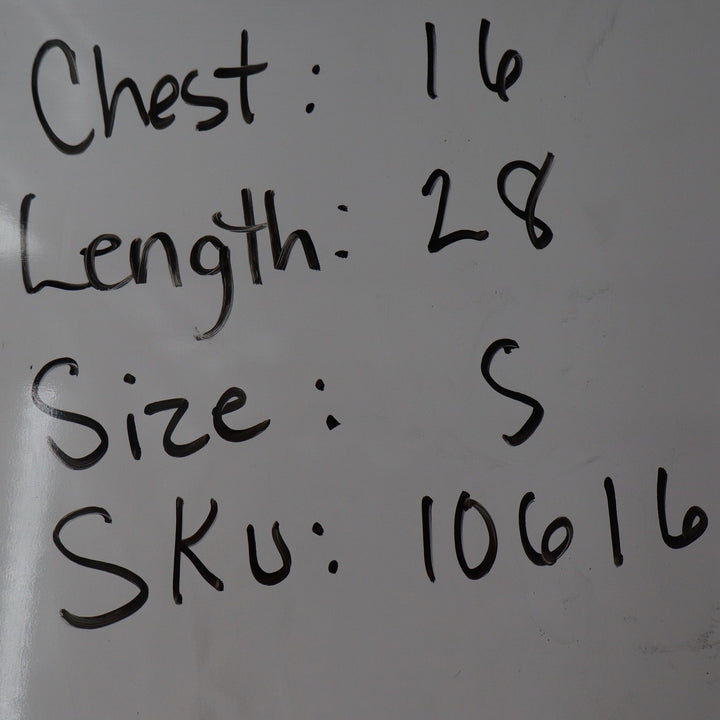 Chest: 16
Length: 28
Size: S
SKU: 10616